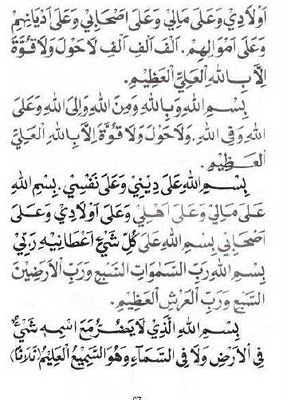 اَوْلَادِيْ وَعَلَى مَالِيْ وَعَلَى اَصْحَابِيْ وَعَلَى اَدْيَانِهِمْ
وَعَلَى اَمْوَالِهِمْ. اَلْفَ اَلْفِ اَلْفِ لَاحَوْلَ وَلَا قُوَّةَ
اِلَّا بِاللهِ الْعَلِيِّ الْعَظِيْمِ.
بِسْمِ اللهِ وَبِاللهِ وَمِنَ اللهِ وَاِلَى اللهِ وَعَلَى
اللهِ وَفِى اللهِ. وَلَاحَوْلَ وَلَا قُوَّةَ اِلَّا بِاللهِ الْعَلِيِّ
الْعَظِيْمِ.
بِسْمِ اللهِ عَلَى دِيْنِيْ وَعَلَى نَفْسِيْ. بِسْمِ اللهِ
عَلَى مَالِيْ وَعَلَى اَهْلِيْ وَعَلَى اَوْلَادِيْ وَعَلَى
اَصْحَابِيْ بِسْمِ اللهِ عَلَى كُلِّ شَيْءٍ اَعْطَانِيْهِ رَبِّيْ
بِسْمِ اللهِ رَبِّ السَّمٰوَاتِ السَّبْعِ وَرَبِّ الْاَرَضِيْنَ
السَّبْعِ وَرَبِّ الْعَرْشِ الْعَظِيْمِ.
بِسْمِ اللهِ الَّذِيْ لَا يَضُرُّ مَعَ اسْمِهِ شَيْءٌ
فِى الْاَرْضِ وَلَا فِى السَّمَاءِ وَهُوَ السَّمِيْعُ الْعَلِيْمُ (ثَلَاثًا)